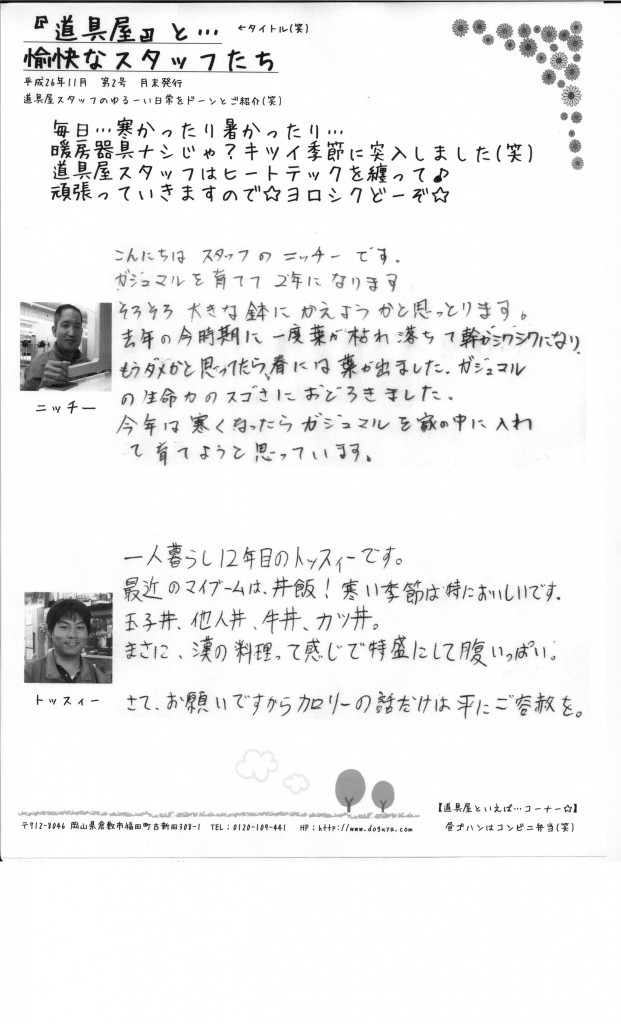 『道具屋』と… ←タイトル(笑)
愉快なスタッフたち
平成26年11月 第2号 月末発行
道具屋スタッフのゆるーい日常をドーンとご紹介(笑)
毎日…寒かったり暑かったり…
暖房器具ナシじゃ?キツイ季節に突入しました(笑)
道具屋スタッフはヒートテックを纏って♪
頑張っていきますので☆ヨロシクどーぞ☆
こんにちは スタッフの ニッチー です.
ガジュマルを育てて 2年に なります
そろそろ 大きな 鉢に かえよう かと思っとります。
去年の今時期に 一度葉が枯れ 落ちて 幹がシワシワになり,
もうダメかと思ってたら,春には 葉が出ました.ガジュマル
の生命力のスゴさに おどろきました.
今年は 寒く なったら ガジュマルを 家の中に 入れ
て 育てようと 思っています。
ニッチー
一人暮らし12年目のトッスィーです。
最近のマイブームは、丼飯! 寒い季節は特においしいです。
玉子丼、他人丼、牛丼、カツ丼。
まさに、漢の料理って感じで特盛にして腹いっぱい。
さて、お願いですからカロリーの話だけは平にご容赦を。
トッスィー
【道具屋といえば…コーナー☆】
昼ゴハンはコンビニ弁当(笑)
〒712-8046 岡山県倉敷市福田町古新田308-1 TEL:0120-109-441 HP:http://www.doguya.com